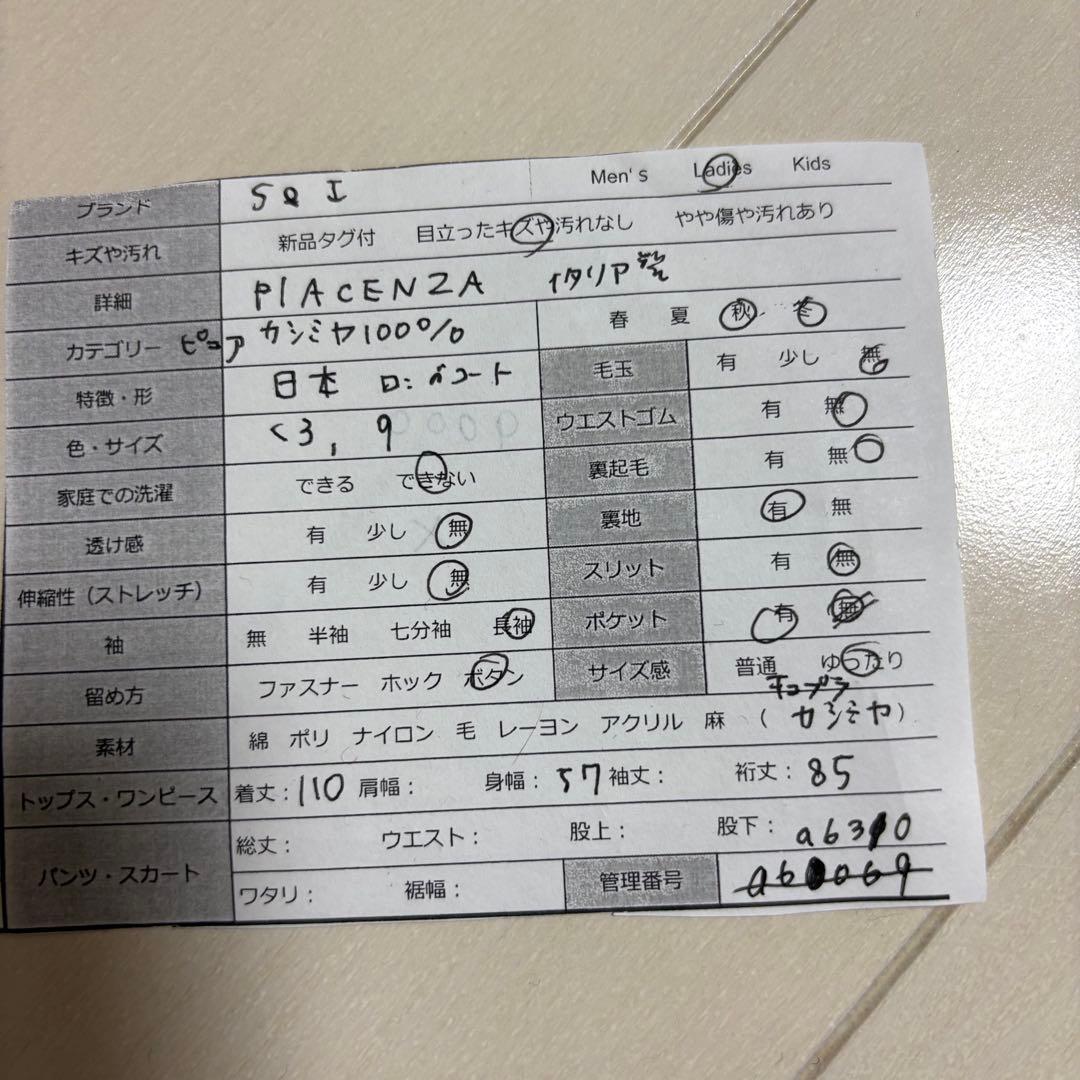 ブランド SQI Men's Ladies Kids
キズや汚れ 新品タグ付 目立ったキズや汚れなし やや傷や汚れあり
詳細 PIACENZA イタリア
カテゴリー ピュア カシミヤ100% 春 夏 秋 冬
特徴・形 日本 ロングコート 毛玉 有 少し 無
色・サイズ 9 ウエストゴム 有 無
家庭での洗濯 できる できない 裏起毛 有 無
透け感 有 少し 無 裏地 有 無
伸縮性（ストレッチ） 有 少し 無 スリット 有 無
袖 無 半袖 七分袖 長袖 ポケット 有 無
留め方 ファスナー ホック ボタン サイズ感 普通 ゆったり
キュプラ
素材 綿 ポリ ナイロン 毛 レーヨン アクリル 麻 （カシミヤ）
トップス・ワンピース 着丈：110 肩幅： 身幅：57 袖丈： 裄丈：85
パンツ・スカート 総丈： ウエスト： 股上： 股下： a6310
ワタリ： 裾幅： 管理番号